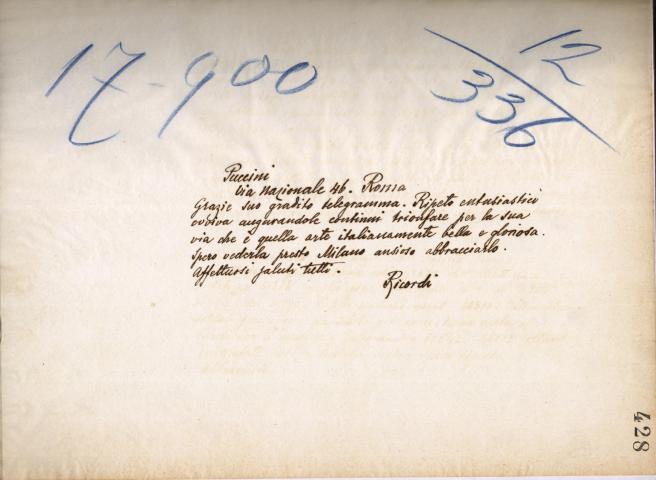 17-900
12/336
Puccini
Via Nazionale 46. Roma
Grazie suo gradito telegramma. Ripeto entusiastici
evviva augurandole continui trionfare per la sua
via che è quella arte italianamente bella e gloriosa.
Spero vederla presto Milano ansioso abbracciarlo.
Affettuosi saluti tutti.
Ricordi
428